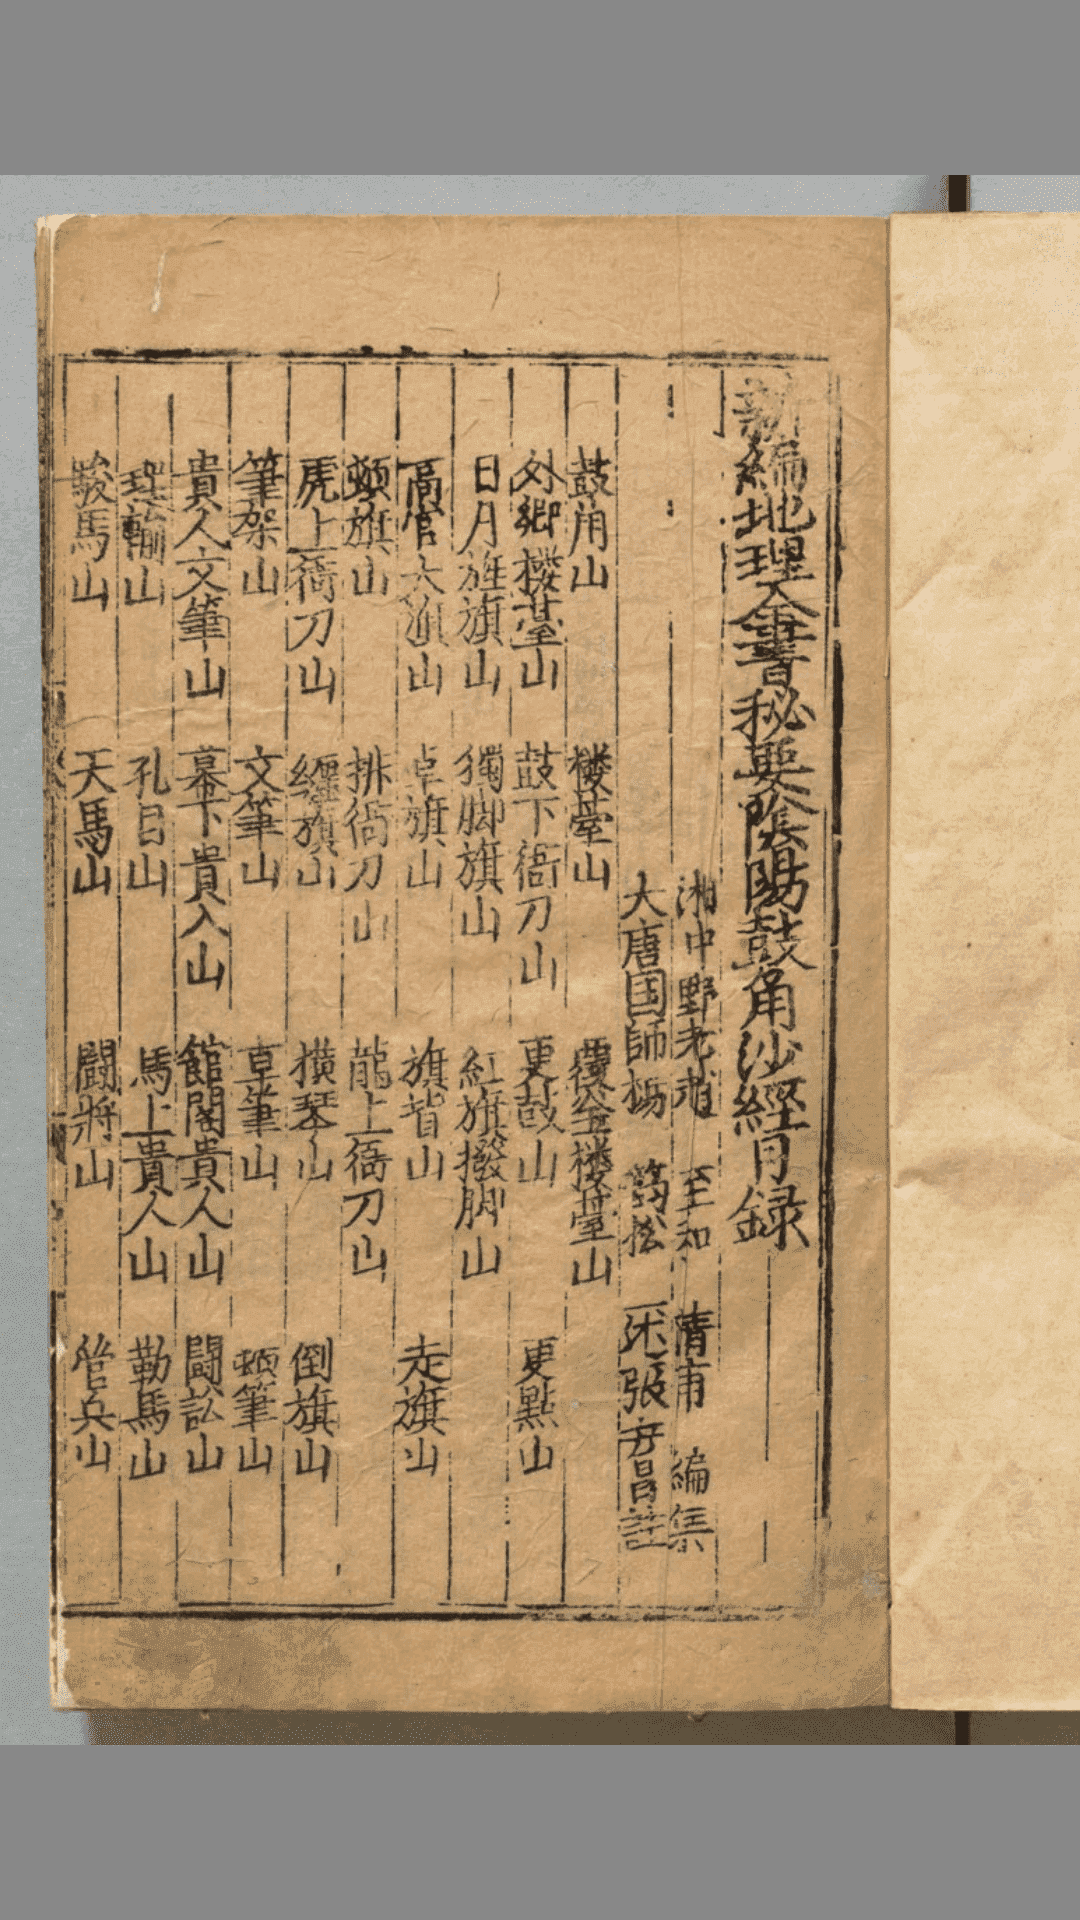 新編地理全書秘要陰陽鼓角沙經目録
湘中野老趙 至和 清甫 編集
大唐国師杨 筠松 張 昌註
鼓角山 楼䑓山 覆金楼䑓山
外郷楼䑓山 鼓下衙刀山 更鼓山 更點山
日月旌旗山 獨脚旗山 紅旗撥脚山
高 大 山 卓旗山 旗 山 走旗山
頓旗山 排衙刀山 龍上衙刀山
虎上衙刀山 纒旗山 横琴山 倒旗山
筆架山 文筆山 卓筆山 頓筆山
貴人文筆山 幕下貴人山 館閣貴人山 闘訟山
輸山 孔目山 馬上貴人山 勒馬山
駿馬山 天馬山 闘將山 管兵山